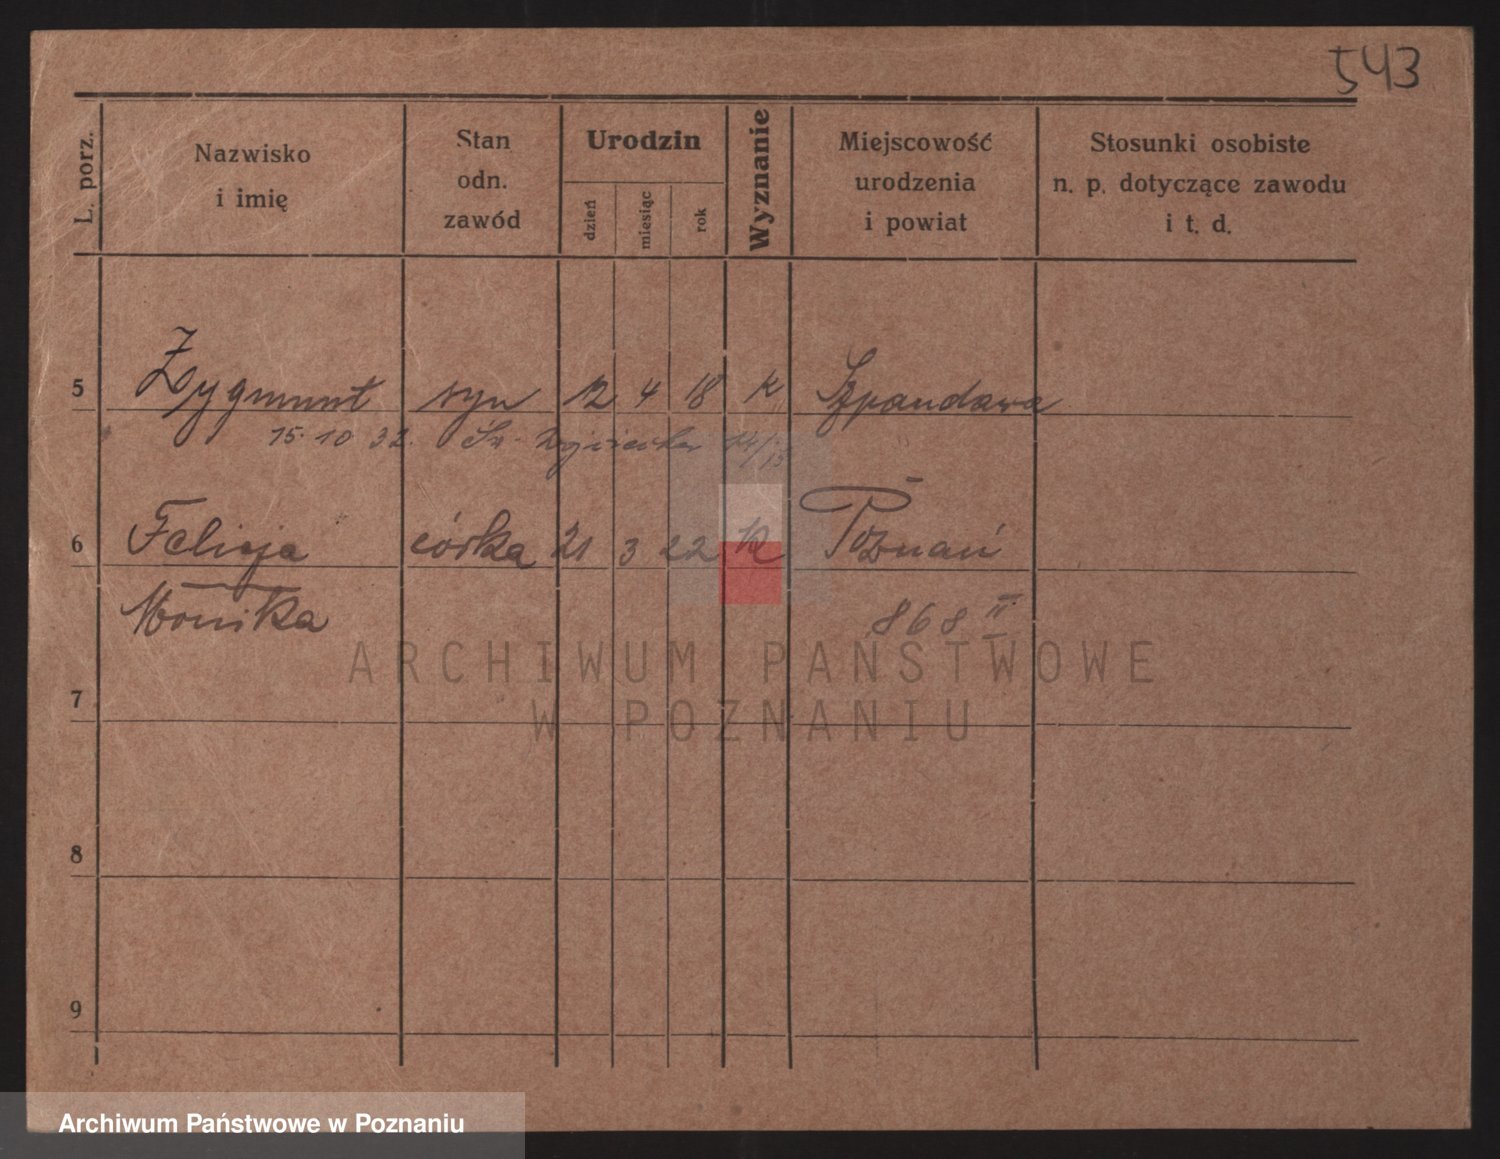 543
L. porz.
Nazwisko
i imię
Stan
odn.
zawód
Urodzin
dzień
miesiąc
rok
Wyznanie
Miejscowość
urodzenia
i powiat
Stosunki osobiste
n. p. dotyczące zawodu
i t. d.
5 Zygmunt syn 12 4 18 k Szpandawa
15. 10 32. Św. Wojciecha 14/15
6 Felicja córka 21 3 22 k Poznań
Monika 868 II
ARCHIWUM PAŃSTWOWE
7
W POZNANIU
8
9
Archiwum Państwowe w Poznaniu